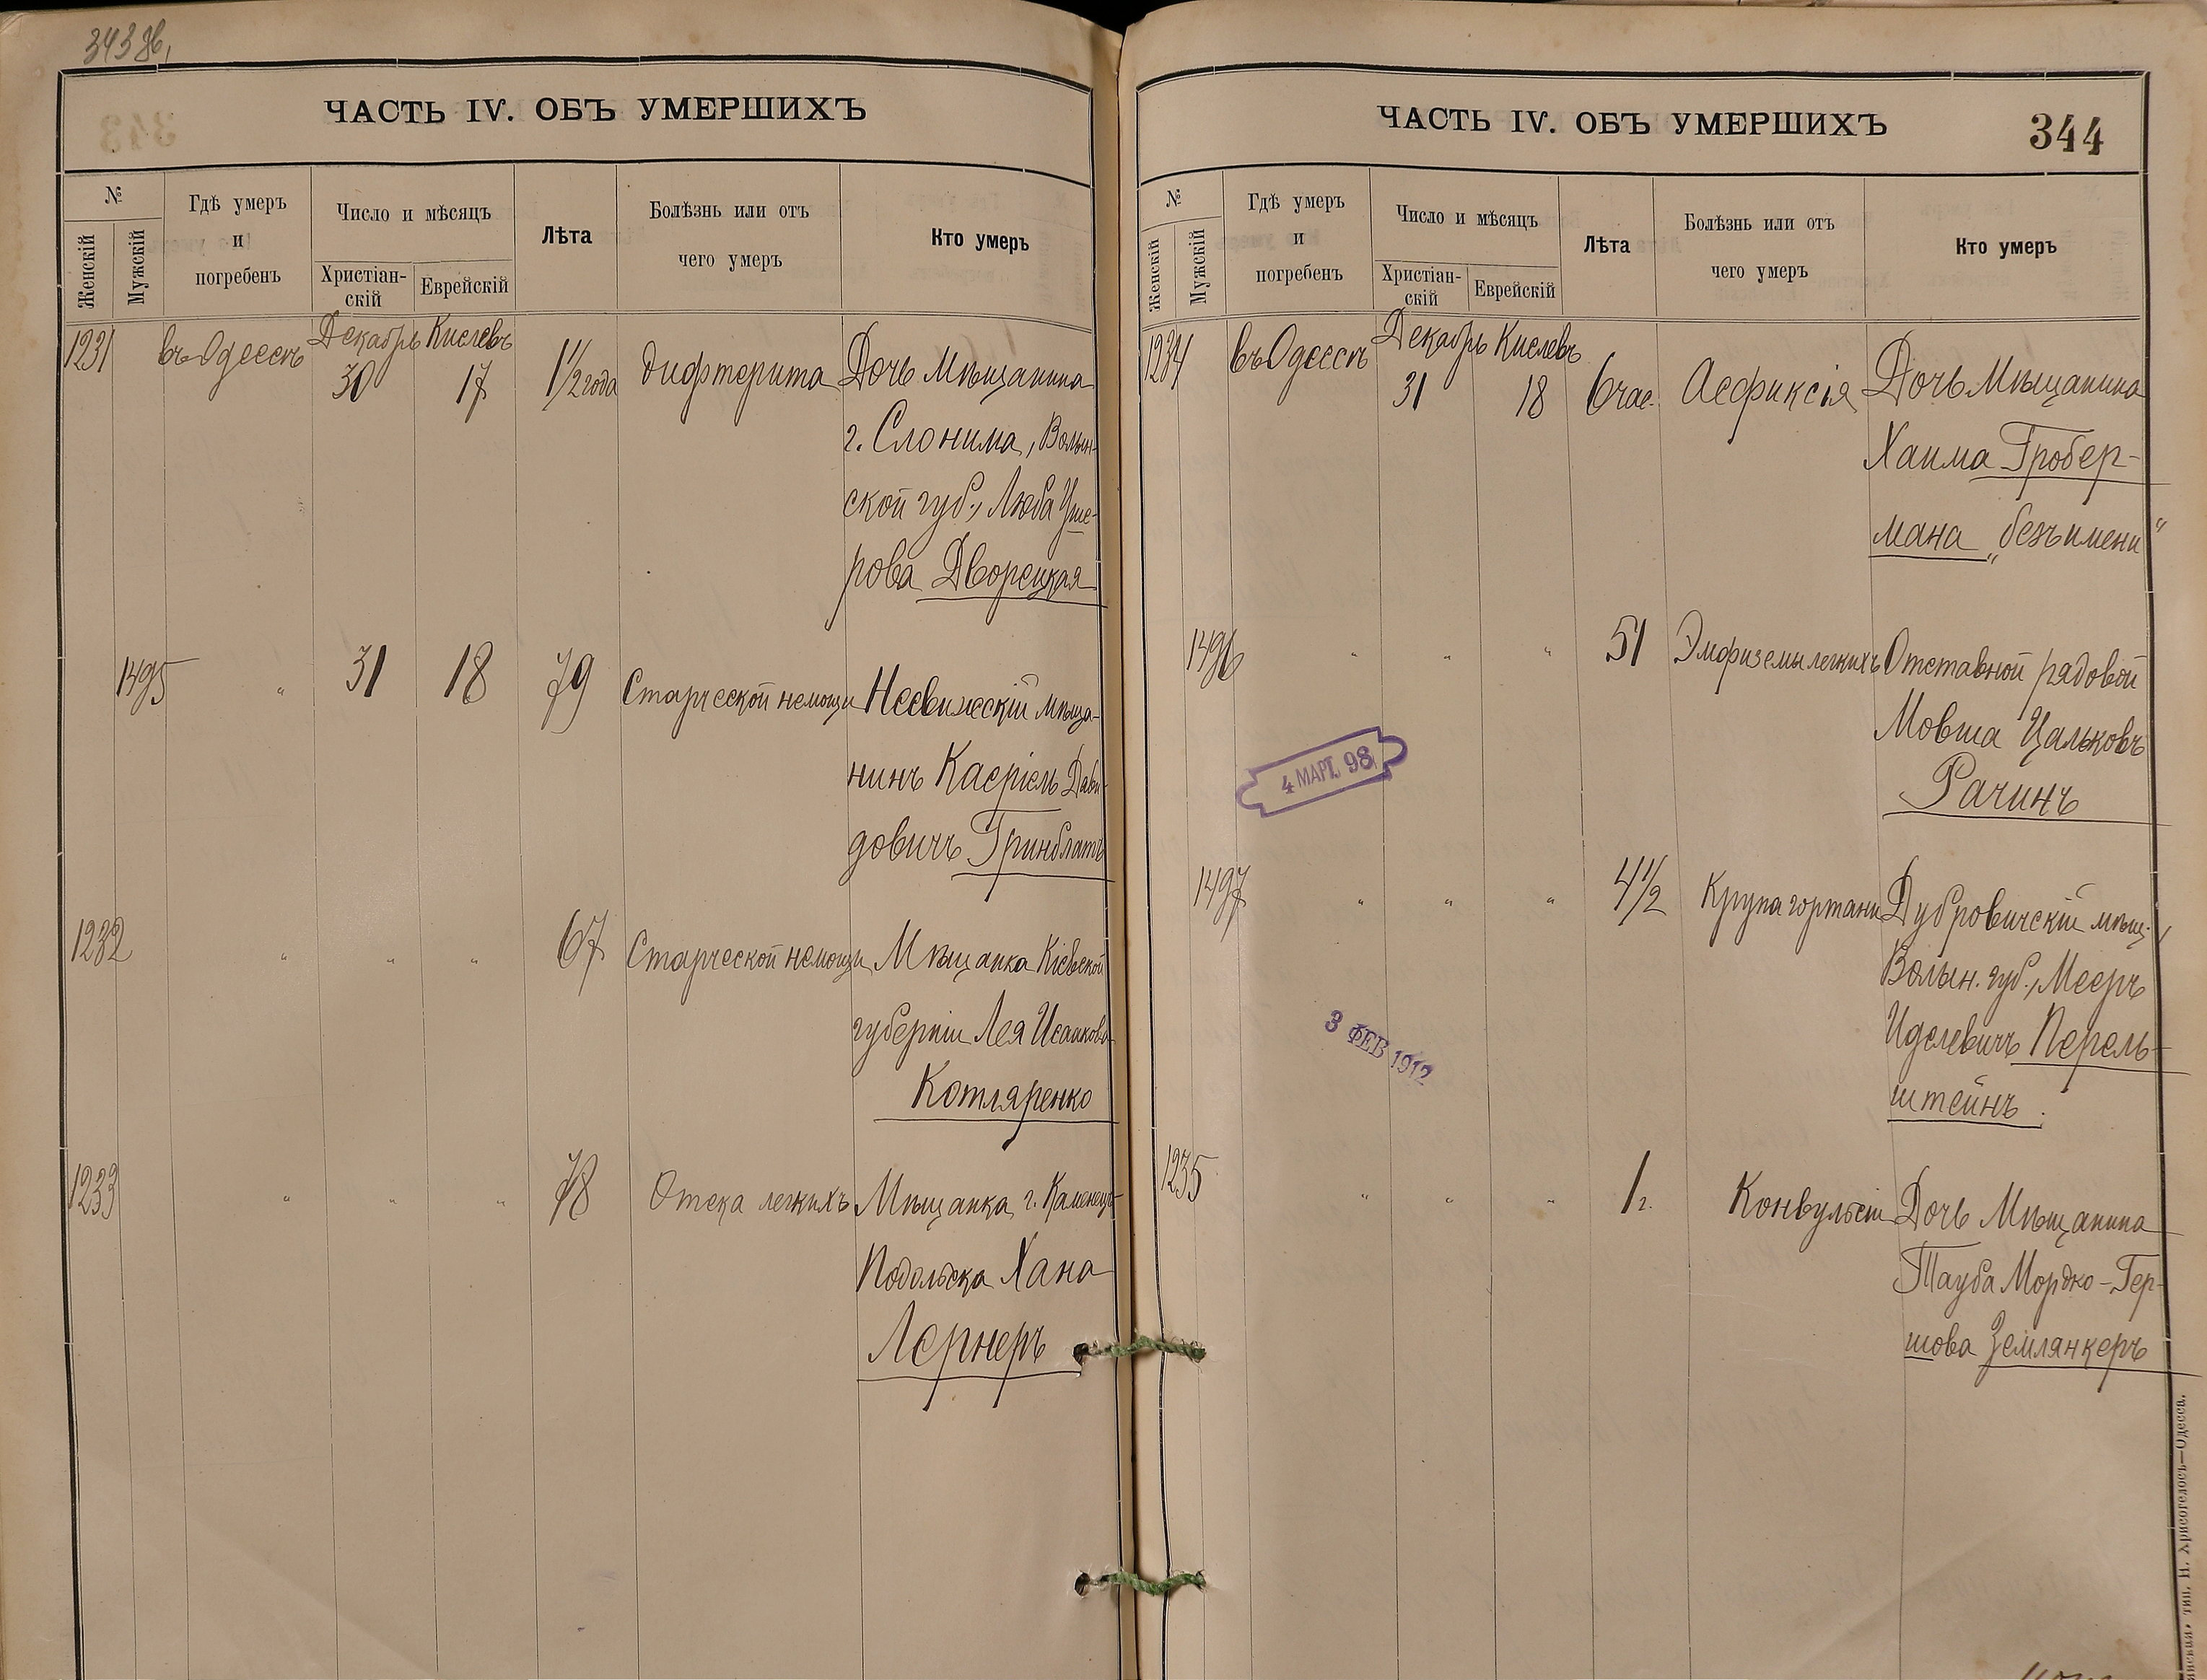 343 об.
ЧАСТЬ IV. ОБЪ УМЕРШИХЪ
№
Женскій
Мужскій
Гдѣ умеръ
и
погребенъ
Число и мѣсяцъ
Христіан-
скій
Еврейскій
Лѣта
Болѣзнь или отъ
чего умеръ
Кто умеръ
1231 въ Одессѣ Декабрь 30 Кислевъ 17 1 1/2 года Дифтерита Дочь Мѣщанина
г. Слонима, Волын-
ской губ., Люба Уше-
рова Дворецкая
1495 " 31 18 79 Старческой немощи Несвижскій мѣща-
нинъ Касріель Дави-
довичъ Гринблатъ
1232 " " " 67 Старческой немощи Мѣщанка Кіевской
губерніи Лея Исаакова
Котляренко
1233 " " " 78 Отека легкихъ Мѣщанка г. Каменецъ-
Подольска Хана
Лернеръ
ЧАСТЬ IV. ОБЪ УМЕРШИХЪ
344
№
Женскій
Мужскій
Гдѣ умеръ
и
погребенъ
Число и мѣсяцъ
Христіан-
скій
Еврейскій
Лѣта
Болѣзнь или отъ
чего умеръ
Кто умеръ
1234 въ Одессѣ Декабрь 31 Кислевъ 18 6 час. Асфиксія Дочь Мѣщанина
Хаима Гробер-
мана „безъ имени“
1496 " " " 51 Эмфиземы легкихъ Отставной рядовой
Мовша Цальковъ
Рачинъ
4 МАРТ. 98
1497 " " " 4 1/2 Крупа гортани Дубровичскій мѣщ.,
Волын. губ., Мееръ
Иделевичъ Перель-
штейнъ.
3 ФЕВ 1912
1235 " " " 1 г. Конвульсіи Дочь Мѣщанина
Тауба Мордко-Гер-
шова Землянкеръ
тип. Н. Хрисогелосъ—Одесса.